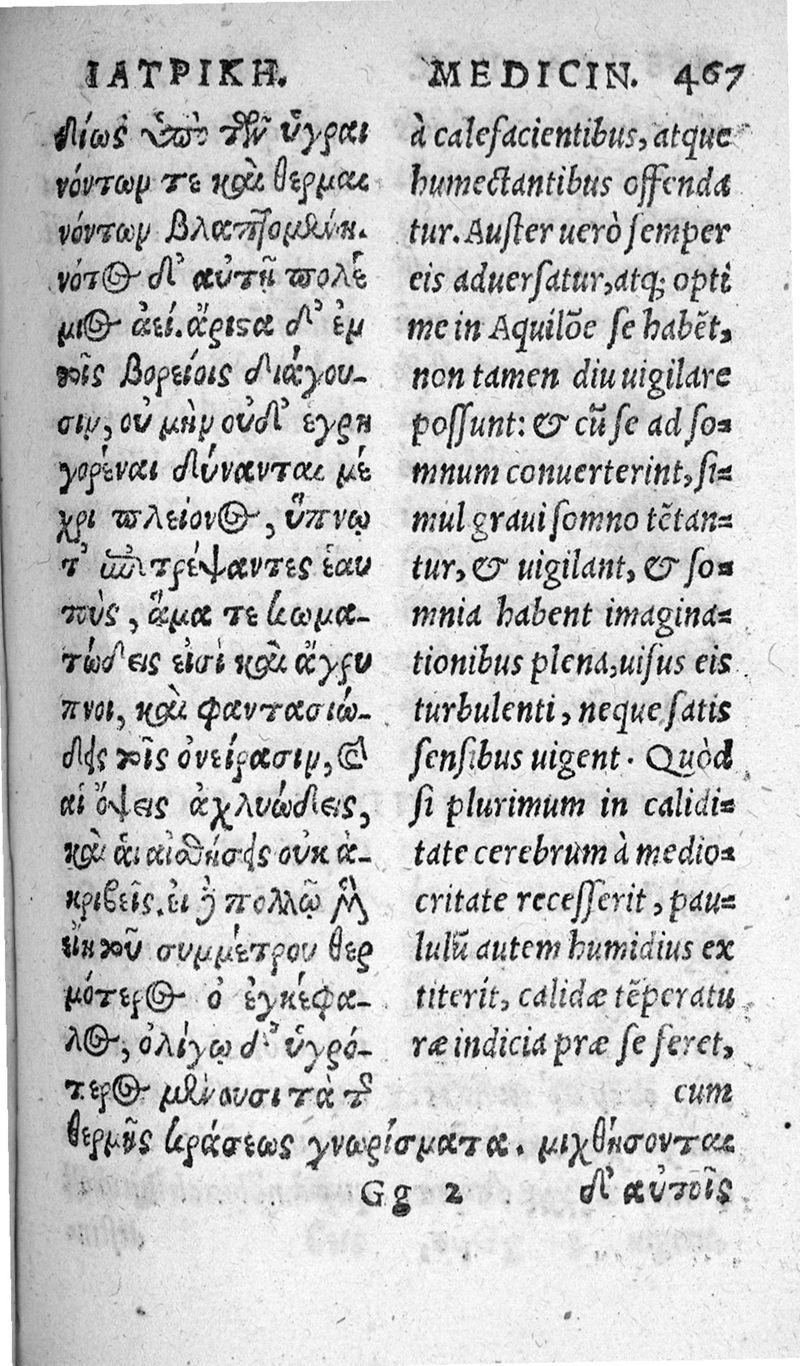 ΙΑΤΡΙΚΗ.
δίως ὑπὸ τῶν ὑγραι
νόντωμ τε καὶ θερμαι
νόντων βλαπτομένη.
νότος δ' αὐτῇ πολέ
μιος ἀεί. ἄριστα δ' ἐμ
τοῖς βορείοις διάγου-
σιμ, οὐ μὴμ οὐδ' ἐγρη
γορέναι δύνανται μέ
χρι πλείονος, ὕπνῳ
τ' ἐπιτρέψαντες ἑαυ
τοὺς, ἅμα τε κωμα-
τώδεις εἰσὶ καὶ ἄγρυ
πνοι, καὶ φαντασιώ-
δεις τοῖς ὀνείρασιμ, καὶ
αἱ ὄψεις ἀχλυώδεις,
καὶ ἁι αἰσθήσεις οὐκ ἀ-
κριβεῖς. εἰ δὲ πολλῷ μὲν
εἴη τοῦ συμμέτρου θερ
μότερος ὁ ἐγκέφα-
λος, ὀλίγῳ δ' ὑγρό-
τερος μένουσι τὰ τῆς
θερμῆς κράσεως γνωρίσματα. μιχθήσονται
δ' αὐτοῖς
MEDICIN. 467
à calefacientibus, atque
humectantibus offenda
tur. Auster uerò semper
eis aduersatur, atq; opti
me in Aquilõe se habẽt,
non tamen diu uigilare
possunt: & cũ se ad so=
mnum conuerterint, si=
mul graui somno tẽtan=
tur, & uigilant, & so=
mnia habent imagina=
tionibus plena, uisus eis
turbulenti, neque satis
sensibus uigent. Quòd
si plurimum in calidi=
tate cerebrum à medio=
critate recesserit, pau=
lulũ autem humidius ex
titerit, calidæ tẽperatu
ræ indicia præ se feret,
cum
Gg 2